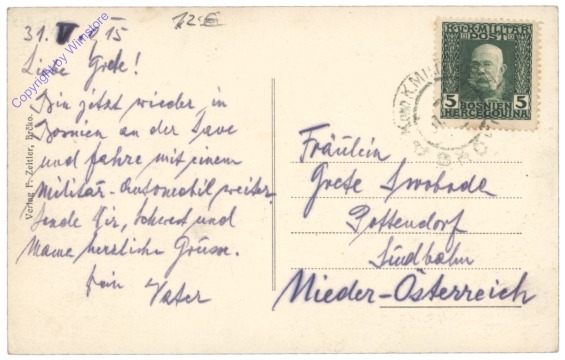 31. V. 15
12.-€
Liebe Grete!
Bin jetzt wieder in
Bosnien an der Save
und fahre mit einem
Militär-Automobil weiter.
Sende Dir, Schwest und
Mama herzliche Grüsse.
Dein Vater
Verlag F. Zeitler, Brčko.
Copyright by Wimstore
K.u.K. MILITÄR
POST
5 5
BOSNIEN
HERCEGOVINA
BRČKO
Fräulein
Grete Swoboda
Pottendorf
Südbahn
Nieder-Österreich